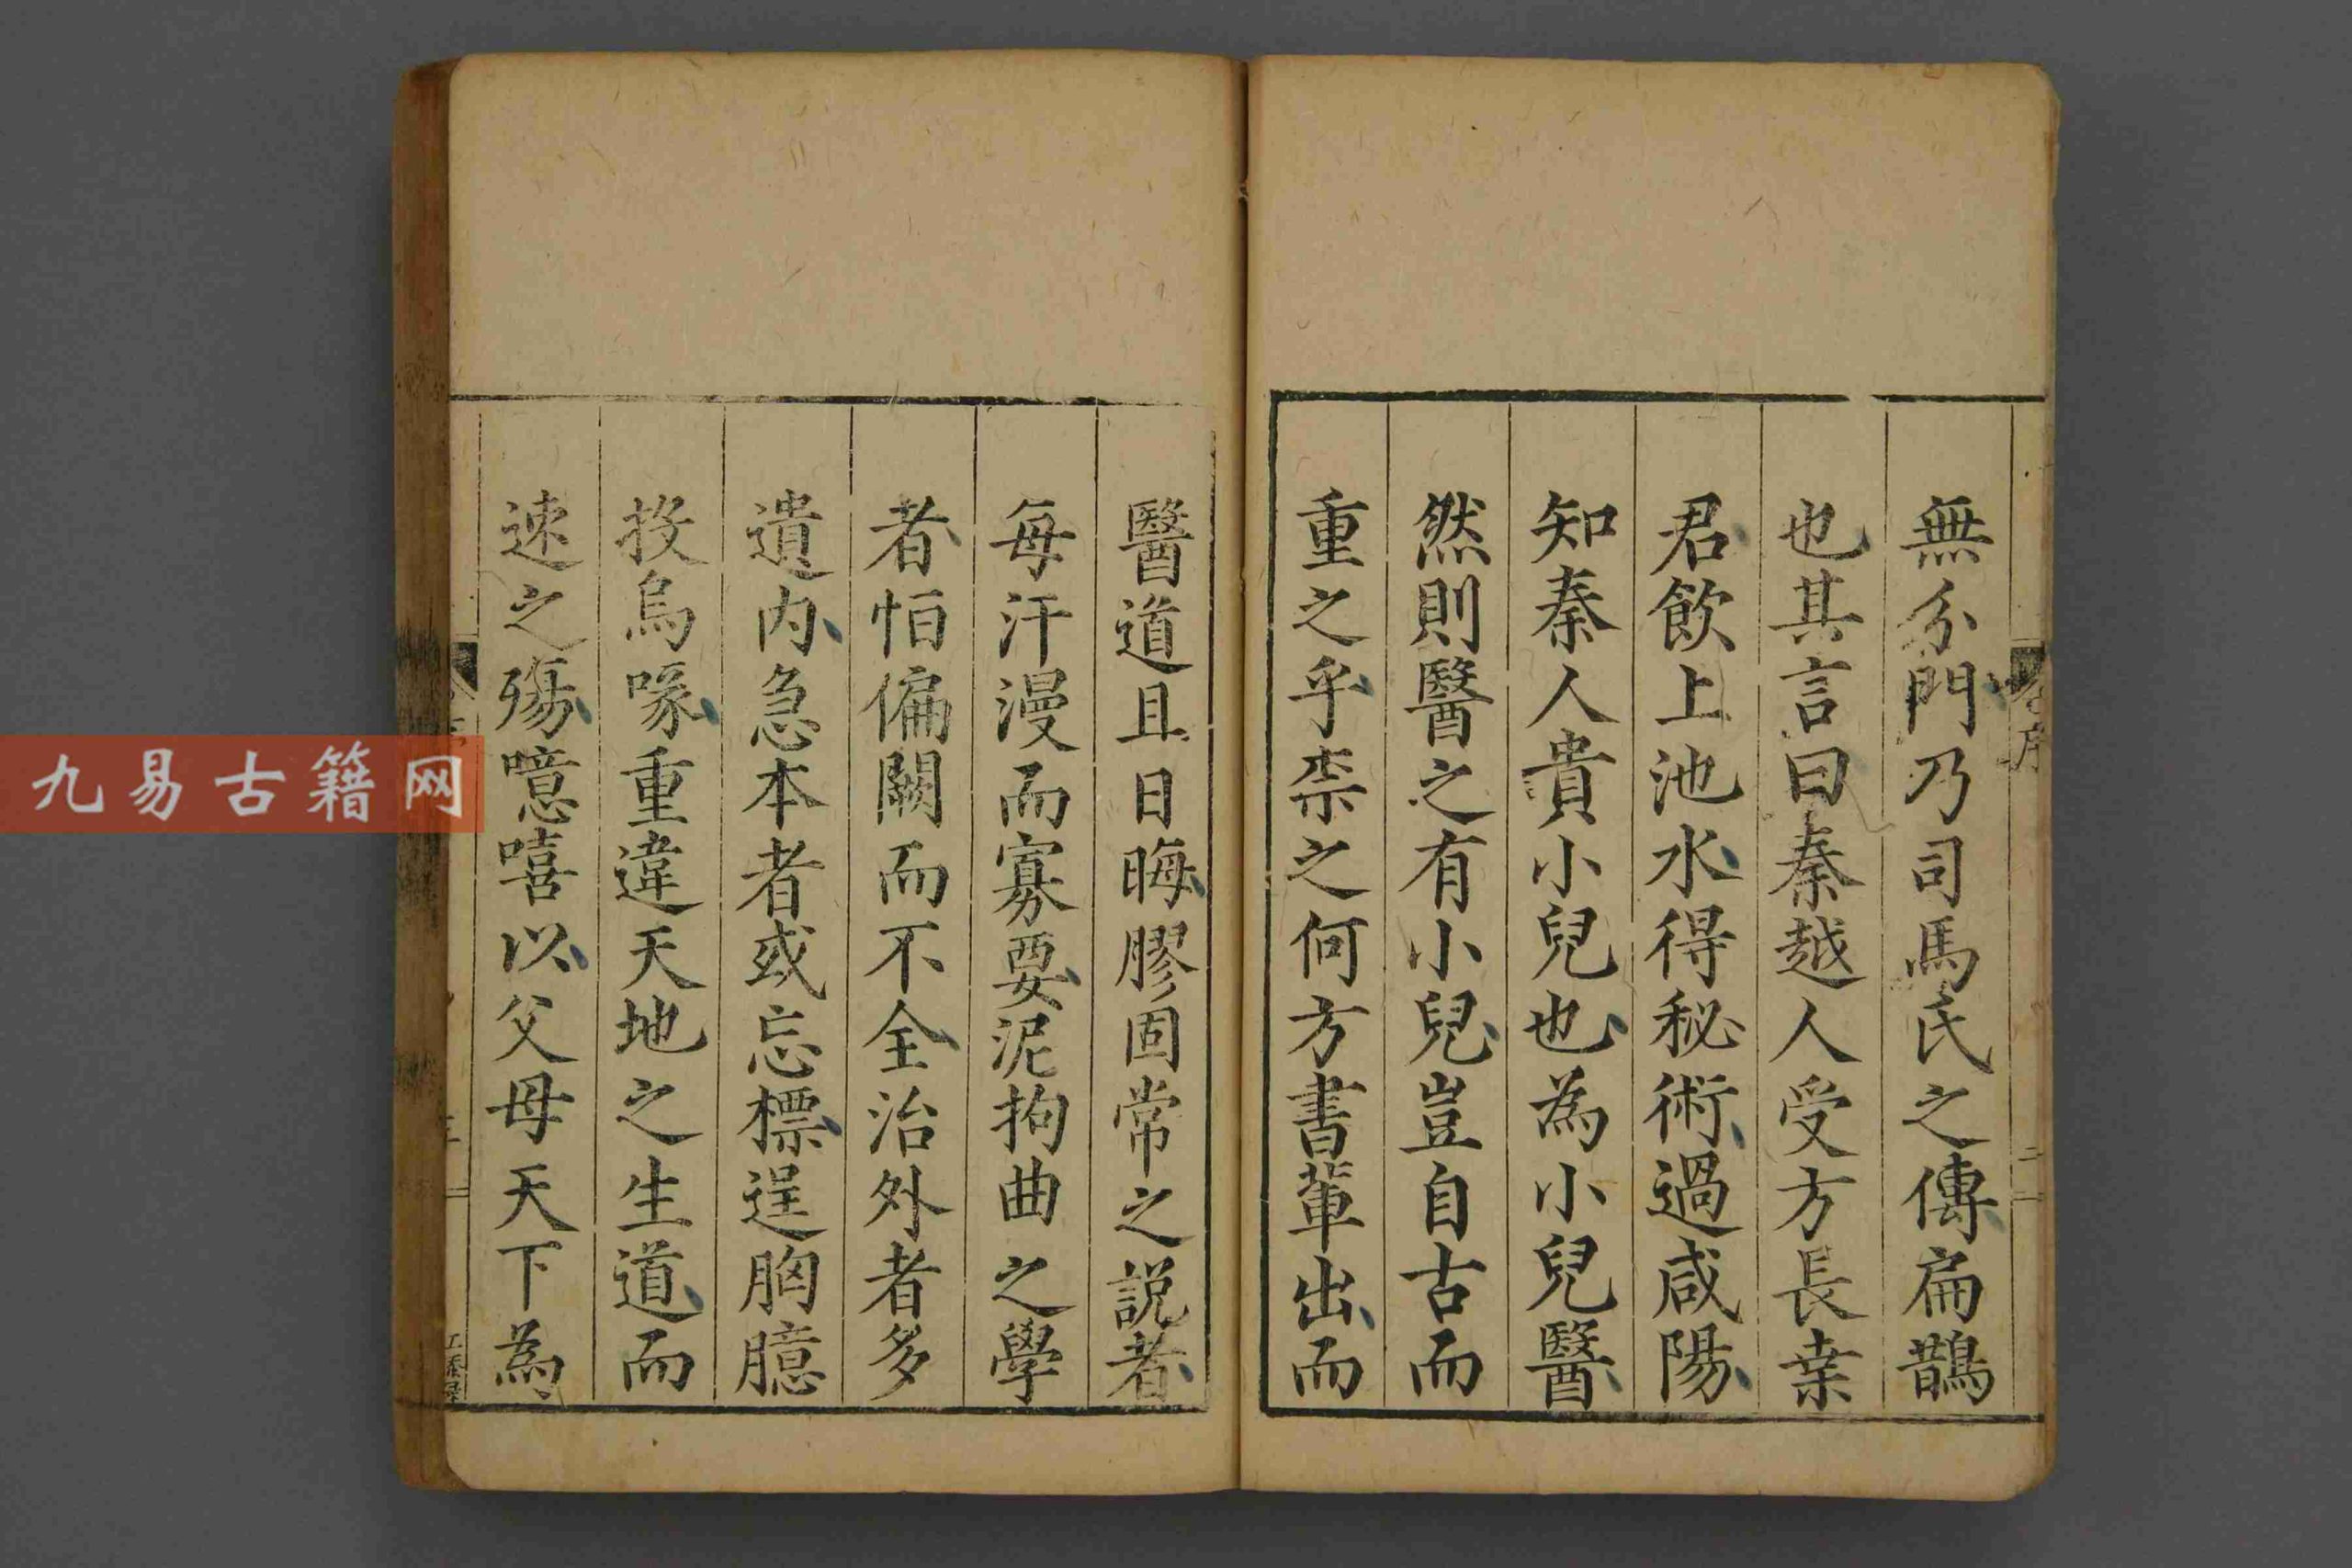 無分門乃司馬氏之傳扁鵲
也其言曰秦越人受方長桒
君飲上池水得秘術過咸陽
知秦人貴小兒也為小兒醫
然則醫之有小兒豈自古而
重之乎柰之何方書輩出而
醫道且日晦膠固常之說者
每汗漫而寡要泥拘曲之學
者怕偏闕而不全治外者多
遺内急本者或忘標逞胸臆
投烏喙重違天地之生道而
速之殤噫嘻以父母天下為
九易古籍网